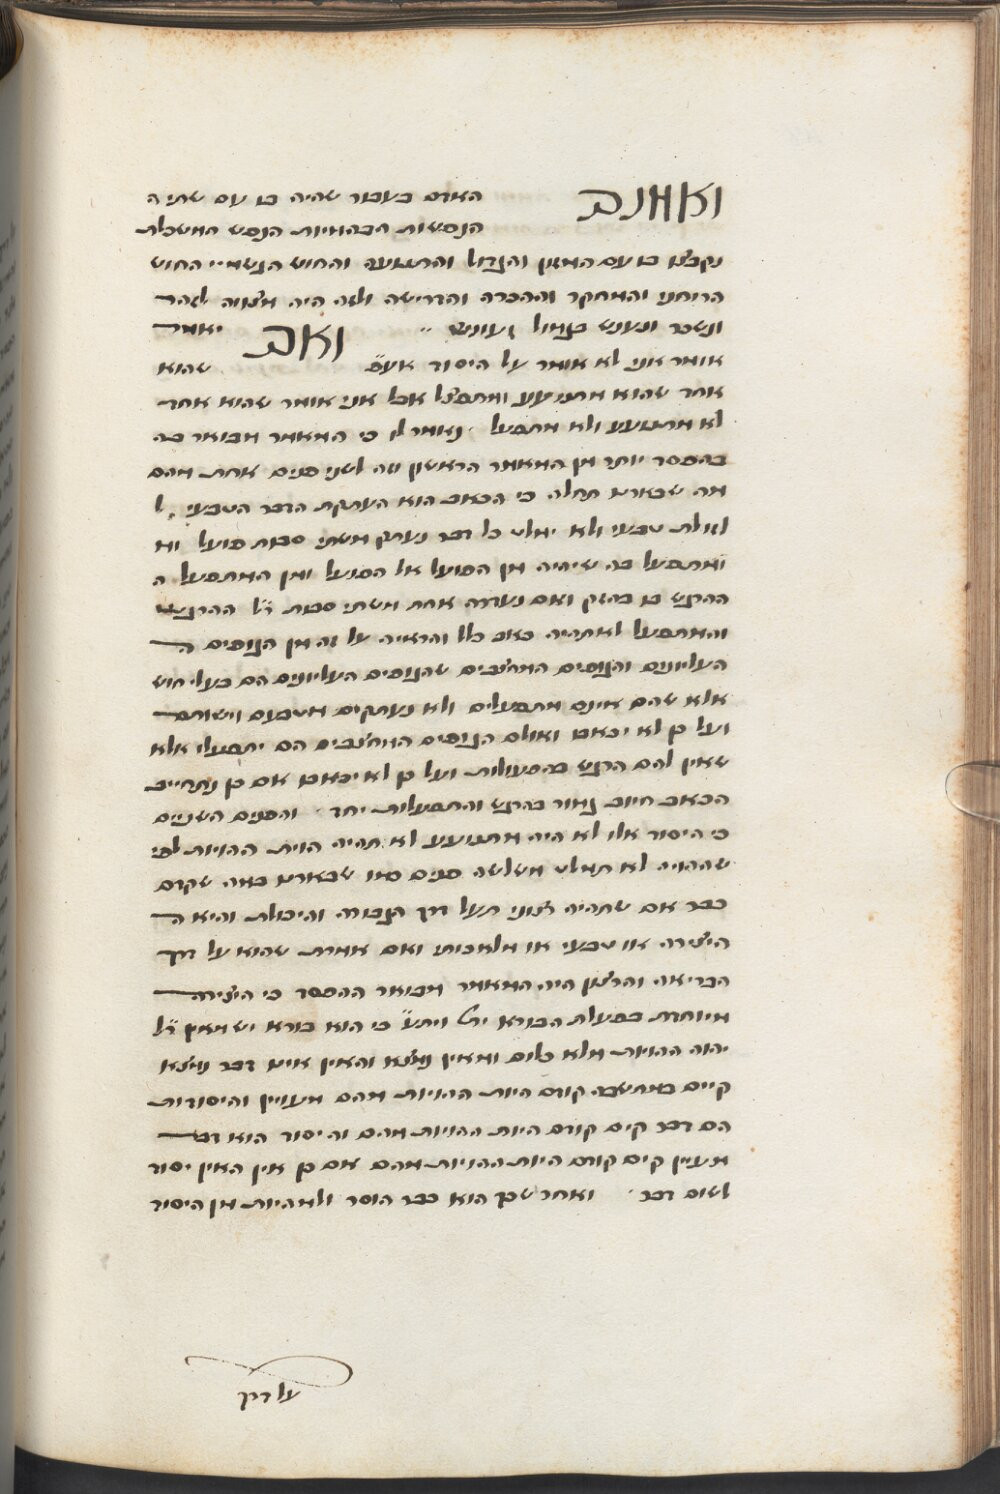 ואמנם האדם בעבור שהיה בו עם שתי ה
הנפשות הבהמיות הנפש המשכלת
נקבצו בו עם המזון והגדול והתנועה והחוש הגשמיי החוש
הרוחני והמחקר וההכרה והדרישה ולזה היה מצווה ונזהר
ונשכר ונענש בגמול ועונש ״ ואם יאמר
אומר אני לא אומר על היסוד שהוא
אחד שהוא מתנועע ומתפעל אבל אני אומר שהוא אחד
לא מתנועע ולא מתפעל . נאמר לו כי המאמר מבואר בה
בהפסד יותר מן המאמר הראשון וזה לשני פנים אחת מהם
מה שבארנו תחלה כי הכאב הוא העתקת הדבר הטבעי ל
לזולת טבעי ולא ימלט כל דבר נעתק משתי סבות פועל ומ
ומתפעל בה שיהיה מן הפועל אל הפועל ומן המתפעל ה
ההרגש בו בהזק ואם נעדרה אחת משתי סבות ר״ל ההרגש
והמתפעל לא תהיה כאב כלל והראייה על זה מן הגופים ה
העליונים והגופים המחצביים שהגופים העליונים הם בעלי חוש
אלא שהם אינם מתפעלים ולא נעתקים מטבעם וישותם
ועל כן לא יכאבו ואולם הגופים המחצביים הם יתפעלו אלא
שאין להם הרגש בהפעולות ועל כן לא יכאבו אם כן נתחייב
הכאב חיוב גמור בהרגש והתפעלות יחד . והפנים השניים
כי היסוד אלו לא היה מתנועע לא תהיה הוית ההויות לפי
שההויה לא תמלט משלשה פנים כמו שבארנו במה שקדם
כבר אם שתהיה רצוני תעל דרך הגבורה והיכולת והיא ה
היצירה או טבעי או מלאכותי ואם אמרת שהוא על דרך
הבריאה והרצון היה המאמר מבואר ההפסד כי היצירה
מיוחדת בפעלת הבורא ית׳ ויתע׳ כי הוא בורא יש מאין ר״ל
יהוה ההויות מלא כלום ומאין נמצא והאין אינו דבר נמצא
קיים במחשבה קודם היות ההויות מהם מעויין והיסודות
הם דבר קים קודם היות ההויות מהם והיסוד הוא דבר
מעויין קים קודם היות ההויות מהם אם כן אין האין יסוד
לשום דבר . ואחר שכן הוא כבר הוסר ולהיות מן היסוד
על דרך